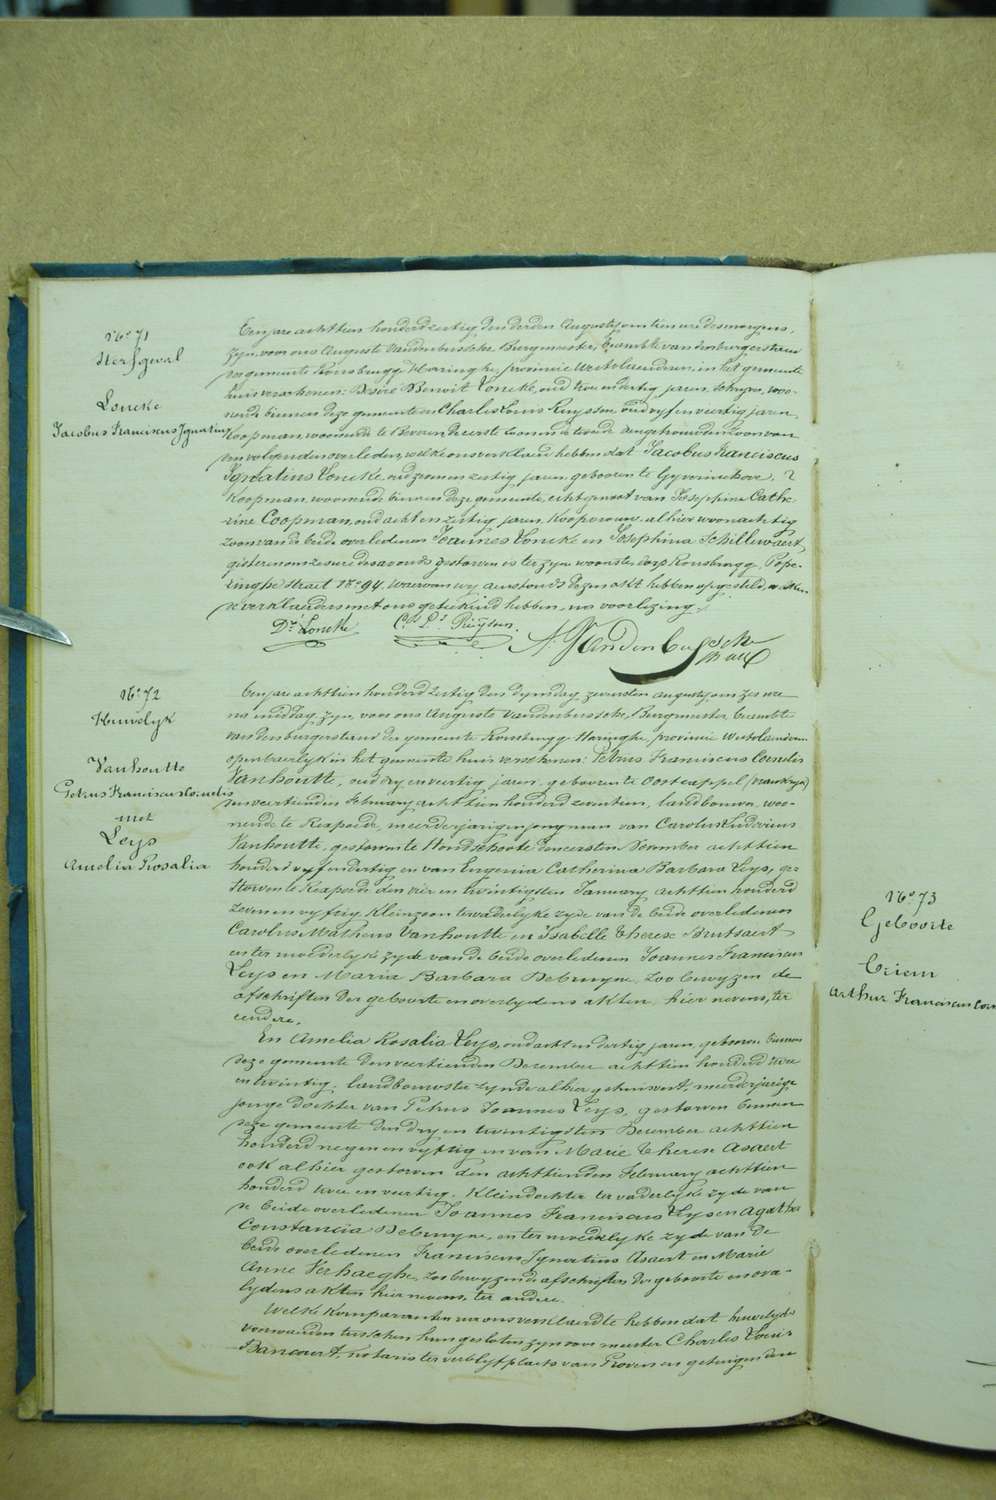 No 71
Sterfgeval
Loncke
Jacobus Franciscus Ignatius
Een jare achttien honderd zestig, den derden Augusty om tien ure des morgens,
zyn voor ons Auguste Vandenbussche Burgmeester, beambte van den burgerstand
der gemeente Rousbrugg-Haringhe, provincie Westvlaenderen, in het gemeente
huis verschenen: Desiré Benoit Loncke, oud twee en dertig jaren, schryver, woo-
nende binnen deze gemeente en Charles Louis Ruyssen oud vyf en veertig jaren,
koopman, woonende te Beveren De eerste zoon en de tweede aengehouwden zoon van
den volgenden overleden, welke ons verklaerd hebben dat Jacobus Franciscus
Ignatius Loncke, oud zeven en zestig jaren, geboren te Gyverinckove,
Koopman, woonende binnen deze gemeente, echtgenoot van Josephine Cathe-
rine Coopman, oud acht en zestig jaren, koopvrouw, alhier woonachtig
zoon van de beide overledenen Joannes Loncke en Josephina Schillewaert,
gisteren om zes ure des avonds gestorven is ter zyne woonste dorp Rousbrugg, Pope-
ringhe straet No 94. Waervan wy aenstonds dezen akt hebben opgesteld, welken
de verklaerders met ons geteekend hebben, na voorlezing.
Dré Loncke
Cs Ls Ruyssen.
A. Vandenbussche
No 72
Huwelyk
Vanhoutte
Petrus Franciscus Cornelis
met
Leys
Amelia Rosalia
Een jare achttien honderd zestig den dynsdag, zevensten augusty om zes ure
na middag, zyn voor ons Auguste Vandenbussche, Burgmeester beambte
van den burgerstand der gemeente Rousbrugg-Haringhe, provincie Westvlaenderen
openbaerlyk in het gemeente huis verschenen: Petrus Franciscus Cornelis
Vanhoutte, oud dry en veertig jaren, geboren te Oostcappel (Frankryk)
den veertienden February achttien honderd zeventien, landbouwer, woo-
nende te Rexpoede, meerderjarigen jongman van Carolus Ludovicus
Vanhoutte, gestorven te Hondschoote den eersten December achttien
honderd vyf en dertig en van Eugenia Catherina Barbara Leys, ge-
storven te Rexpoede den vier en twintigsten January achttien honderd
zeven en vyftig Kleinzoon ter vaderlyke zyde van de beide overledenen
Carolus Matheus Vanhoutte en Isabelle Therese Brutsaert
en ter moederlyke zyde van de beide overledenen Joannes Franciscus
Leys en Maria Barbara Debruyne, zoo bewyzen de
afschriften der geboorte en overlydens akten, hier nevens, ter
eendere.
En Amelia Rosalia Leys, oud acht en dertig jaren, geboren binnen
deze gemeente den veertienden December achttien honderd twee
en twintig, landbouwster zynde alhier gehuisvest, meerderjarige
jonge dochter van Petrus Joannes Leys, gestorven binnen
deze gemeente den dry en twintigsten December achttien
honderd negen en vyftig en van Marie Therese Asaert
ook alhier gestorven den achttienden February achttien
honderd twee en veertig. Kleindochter ter vaderlyke zyde van
de beide overledenen Joannes Franciscus Leys en Agatha
Constancia Debruyne, en ter moederlyke zyde van de
beide overledenen Franciscus Ignatius Asaert en Marie
Anne Verhaeghe, zoo bewyzen de afschriften der geboorte en ove-
lydens akten hier nevens, ter andere.
Welke komparanten van ons verklaerd te hebben dat huwelyks
voorwaerden tusschen hun gesloten zyn voor meester Charles Louis
Bancaert, notaris ter verblyfplaets van Proven en getuigen den
No 73
Geboorte
Criem
Arthur Franciscus Cor